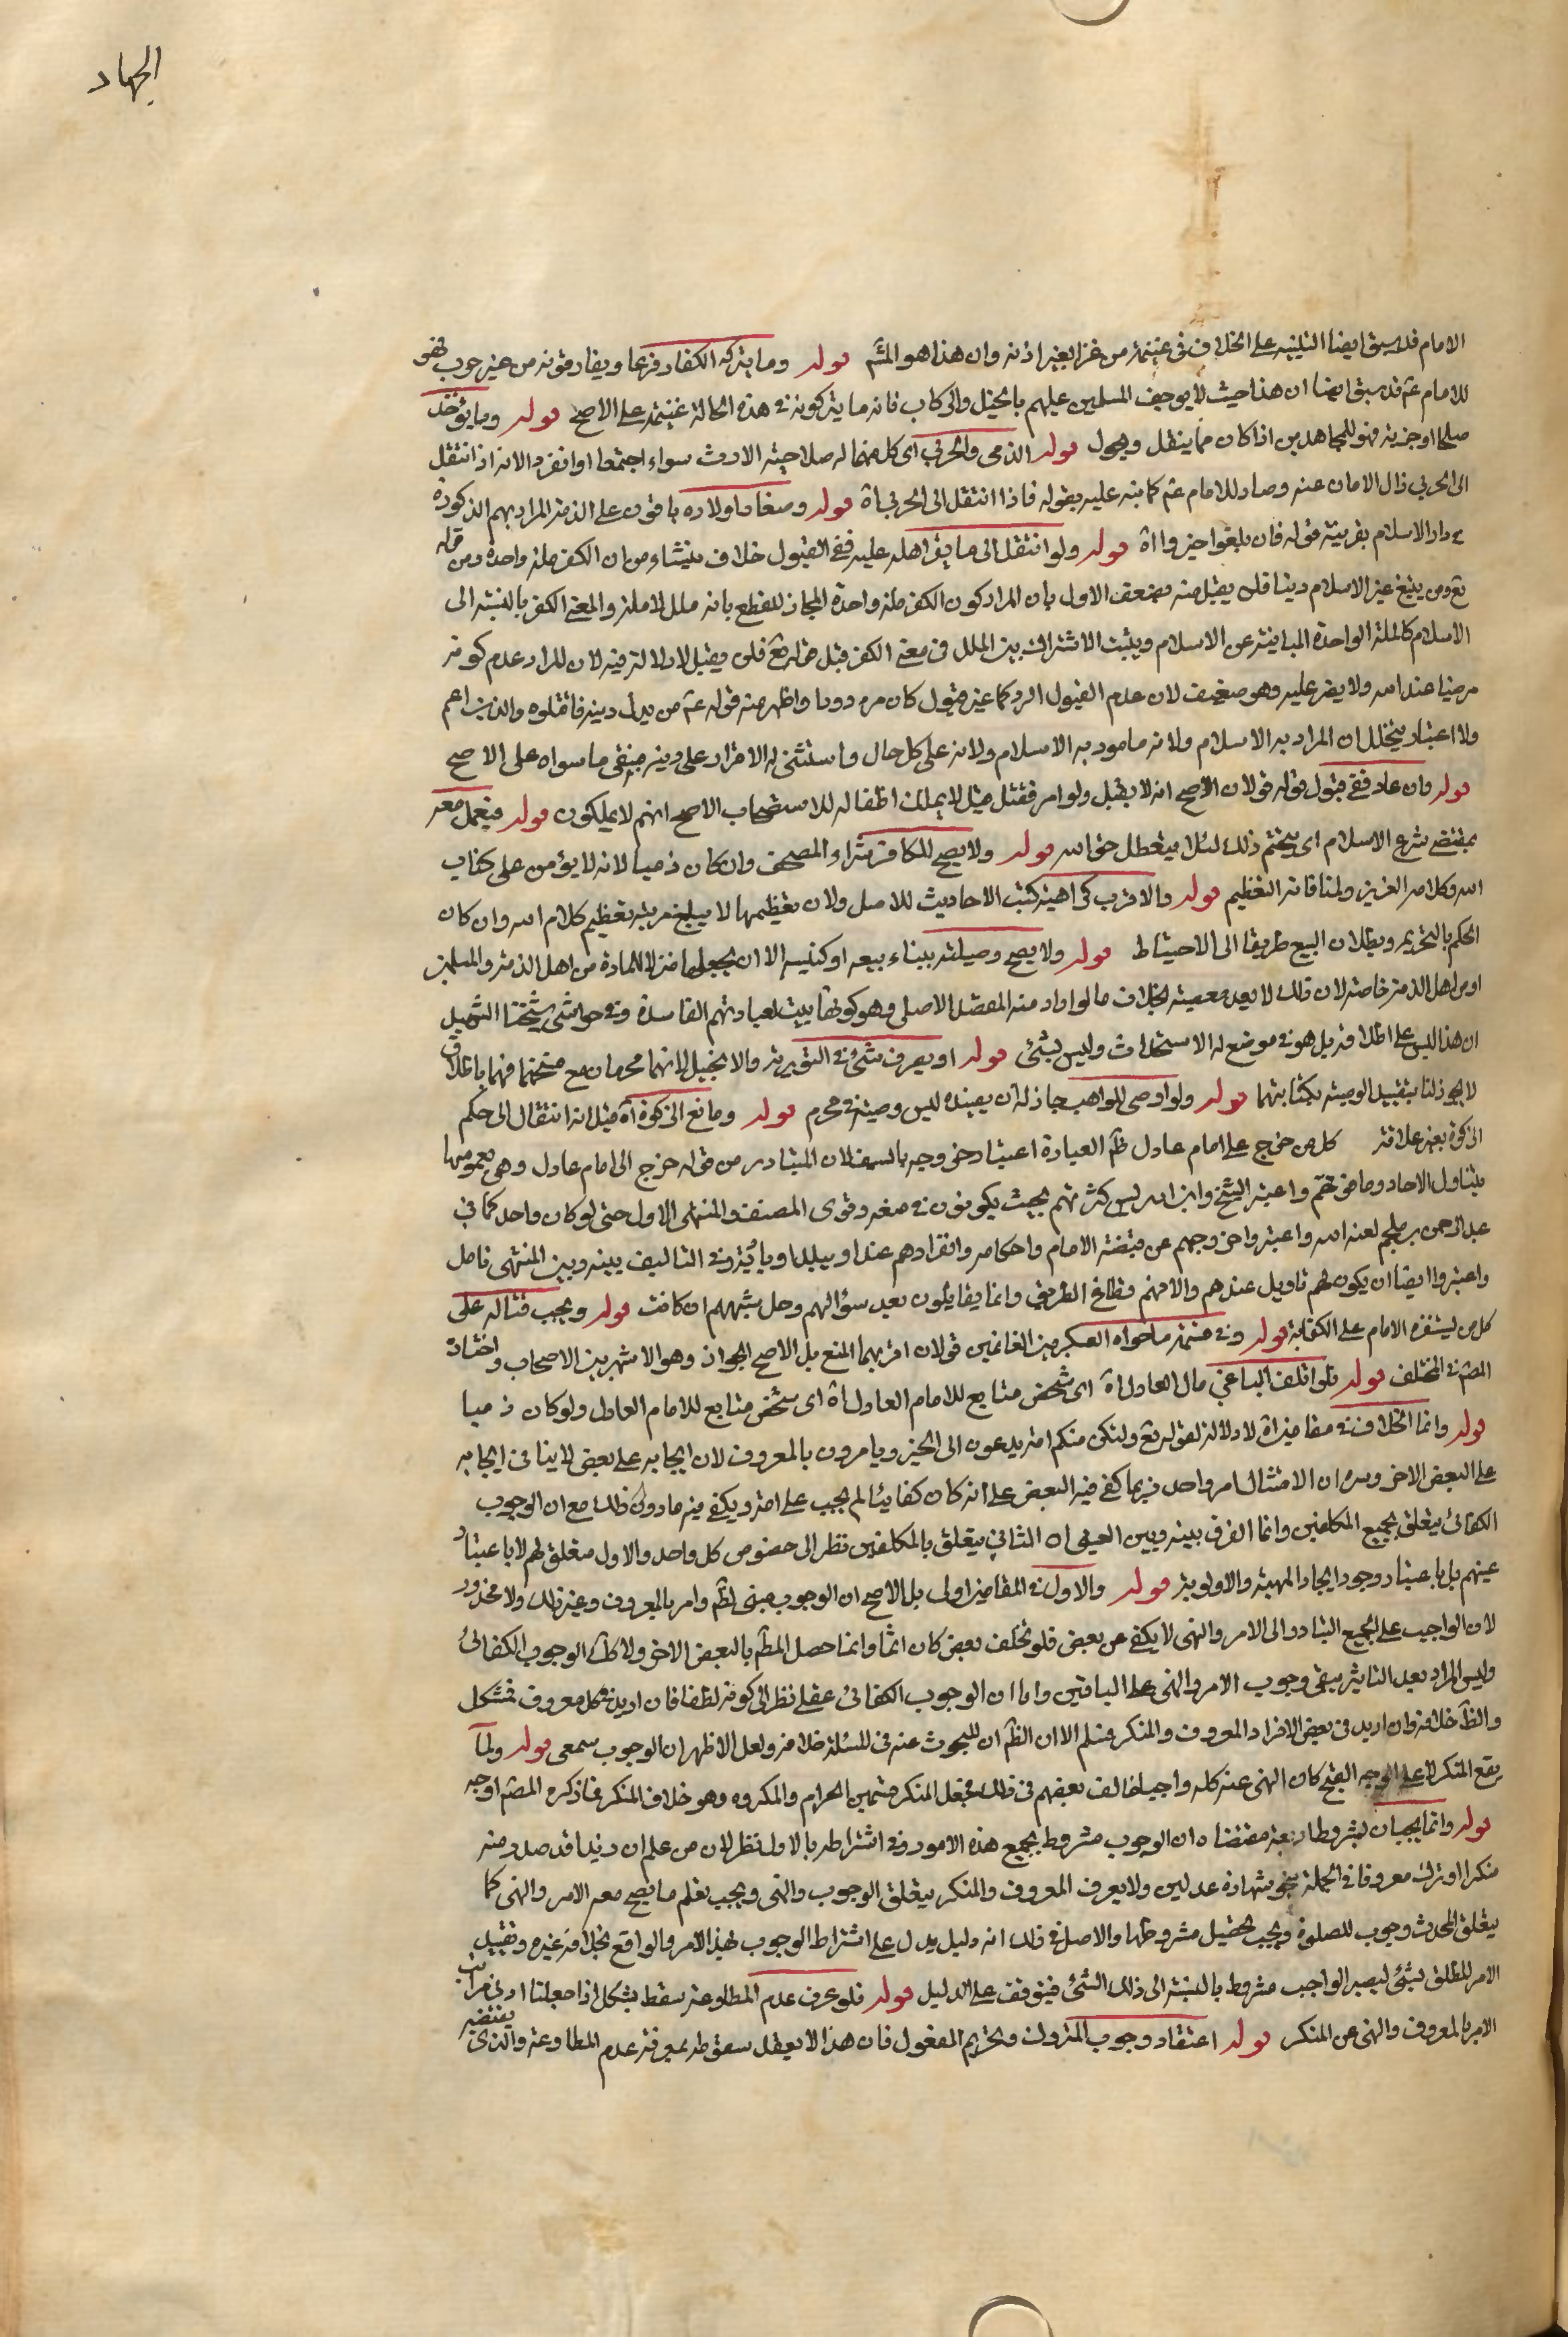 الجهاد
الامام قد سبق ايضا التنبيه على الخلاف في غنيمة من غزا بغير اذنه وان هذا هو المشم قوله وما يتركه الكفار فزعا ويفارقونه من غير حرب فهو
للامام عم قد سبق ايضا ان هذا حيث لا يوجف المسلمين عليهم بالخيل والركاب فانه ما يتركونه في هذه الحالة غنيمة على الاصح قوله وما يؤخذ
صلحا او جزية فهو للمجاهدين اذا كان مما ينقل ويحول قوله الذمى والحربى اى كل منهما له صلاحية الارث سواء اجتمعا او انفرد الانه اذا انتقل
الى الحربى زال الامان عنه وصار للامام عم كما نبه عليه بقوله فاذا انتقل الى الحربى اه قوله وصغار اولاده باقون على الذمة المراد بهم الذكورة
في دار الاسلام بقرينة قوله فان بلغوا خيروا اه قوله ولو انتقل الى ما يقر اهله عليه ففى القبول خلاف ينشاء من ان الكفر ملة واحدة ومن قوله
تع ومن يبتغ غير الاسلام دينا فلن يقبل منه ويضعف الاول بان المراد كون الكفر ملة واحدة المجاز للقطع بانه ملل لا ملة والمعنى الكفر بالنسبة الى
الاسلام كالملة الواحدة المباينة عن الاسلام ويثبت الاشتراك بين الملل في معنى الكفر قيل قوله تع فلن يقبل لا دلالة فيه لان المراد عدم كونه
مرضيا عند الله ولا يضر عليه وهو ضعيف لان عدم القبول الرد كما غير مقبول كان مردودا واظهر منه قوله عم من بدل دينه فاقتلوه والدين اعم
ولا اعتبار بتخيل ان المراد به الاسلام ولانه مامور به الاسلام ولانه على كل حال واستثنى له الاقرار على دينه فيبقى ما سواه على الاصح
قوله وان عاد ففى قبول قوله قولان الاصح انه لا يقبل ولو امر فقتل قيل لا يملك اطفاله للاستصحاب الاصح انهم لا يملكون قوله فيفعل معه
بمقتضى شرع الاسلام اى يتحتم ذلك لئلا يتعطل حق الله قوله ولا يصح للكافر شراء المصحف وان كان ذميا لانه لا يؤمن على كتاب
الله وكلامه العزيز ولمنافاته التعظيم قوله والاقرب كراهية كتب الاحاديث للاصل ولان تعظيمها لا يبلغ مرتبة تعظيم كلام الله وان كان
الحكم بالتحريم وبطلان البيع طريقا الى الاحتياط قوله ولا يصح وصيلته ببناء بيعه او كنيسه الا ان يجعلها منزلا للمارة من اهل الذمة والمسلمين
او من اهل الذمة خاصة لان ذلك لا يعد معصية بخلاف ما لو اراد منه المقصد الاصلى وهو كونها بيت لعبادتهم الفاسدة وفي حواشى شيخنا الشهيد
ان هذا ليس على اطلاقه بل هو في موضع له الاستحداث وليس بشئ قوله او يصرف شئ في التورية والانجيل لانهما محرمان مع فيهما باطلاق
لا يجوز لنا بتقييد الوصية بكتابتهما قوله ولو اوصى للراهب جاز لان يعينه ليس وصية في محرم قوله ومانع الزكوة اه قيل انه انتقال الى حكم
الزكوة بغير علاقة كل من خرج على امام عادل ظم العبارة اعتبار خروجه بالسيف لان المتبادر من قوله خرج الى امام عادل وهى بعمومها
يتناول الاحاد وما فوقهم واعتبر الشيخ وابن ادريس كثرتهم بحيث يكونون في منعه وقوى المصنف والمنتهى الاول حتى لو كان واحد كما في
عبد الرحمن بن ملجم لعنه الله واعتبروا خروجهم عن قبضة الامام واحكامه وانفرادهم عنه او ببلد او بادية وفي التاليف بينه وبين المنتهى تامل
واعتبروا ايضا ان يكون لهم تاويل عندهم والا فهم قطاع الطريق وانما يقاتلون بعد سؤالهم وحل شبههم ان كانت قوله ويجب قتاله على
كل من يستنفره الامام على الكفاية قوله وفي قسمة ما حواه العسكر بين الغانمين قولان اقربهما المنع بل الاصح الجواز وهو الاشهر بين الاصحاب واختاره
المصم في المختلف قوله ولو اتلف الباغى مال العادل اه اى شخص متابع للامام العادل اه اى شخص متابع للامام العادل ولو كان ذميا
قوله وانما الخلاف في مقامين اه لا دلالة لقوله تع ولتكن منكم امة يدعون الى الخير ويامرون بالمعروف لان ايجابه على بعض لا ينافى ايجابه
على البعض الاخر ان الامتثال امر واحد فربما كفى فيه البعض على انه كان كفائيا لم يجب على امة ويكفى فيه مادون ذلك مع ان الوجوب
الكفائى يتعلق بجميع المكلفين وانما الفرق بينه وبين العينى ان الثانى يتعلق بالمكلفين نظر الى خصوص كل واحد والاول متعلق لهم لا باعتبار
عينهم بل باعتبار وجود ايجاد المهية والاولوية قوله والاول في المقامين اولى بل الاصح ان الوجوب عينى لظم وامر بالمعروف وغير ذلك ولا محذور
لان الواجب على الجميع التبادر الى الامر والنهى لا يكفى عن بعض فلو تخلف بعض كان اثما وانما حصل المطم بالبعض الاخر ولا كذلك الوجوب الكفائى
وليس المراد بعد التاثير يبقى وجوب الامر والنهى على الباقين واما ان الوجوب الكفائى عقلى نظر الى كونه لطفا فان اريد في كل معروف فمشكل
والظم خلافه وان اريد في بعض الافراد المعروف والمنكر فمسلم الا ان الظم ان المبحوث عنه في المسئلة خلافه ولعل الاظهر ان الوجوب سمعى قوله ولما
يقع المنكر لا على الوجه القبيح كان النهى عنه كله واجبا خالف بعضهم في ذلك فجعل المنكر قسمين الحرام والمكروه وهو خلاف المنكر فما ذكره المصم اوجه
قوله وانما يجبان بشروط اربعة مقتضاه ان الوجوب مشروط بجميع هذه الامور وفي اشتراطه بالاول نظر لان من علم ان زيدا قد صدر منه
منكرا او ترك معروفا في الجملة بنحو شهادة عدلين ولا يعرف المعروف والمنكر يتعلق الوجوب والنهى ويجب تعلم ما يصح معه الامر والنهى كما
يتعلق المحدث وجوب الصلوة ويجب تحصيل مشروطها والاصل في ذلك انه دليل يدل على اشتراط الوجوب بهذا الامر والواقع بخلافه غيره وتقييد
الامر المطلق بشئ ليصير الواجب مشروط بالنسبة الى ذلك الشئ فيتوقف على الدليل قوله فلو عرف عدم المطاوعة سقط يشكل اذا جعلنا ادنى مراتب
الامر بالمعروف والنهى عن المنكر قوله اعتقاد وجوب المتروك وتحريم المفعول فان هذا لا يعقل سقوطه بمعرفة عدم المطاوعة والذى يقتضيه